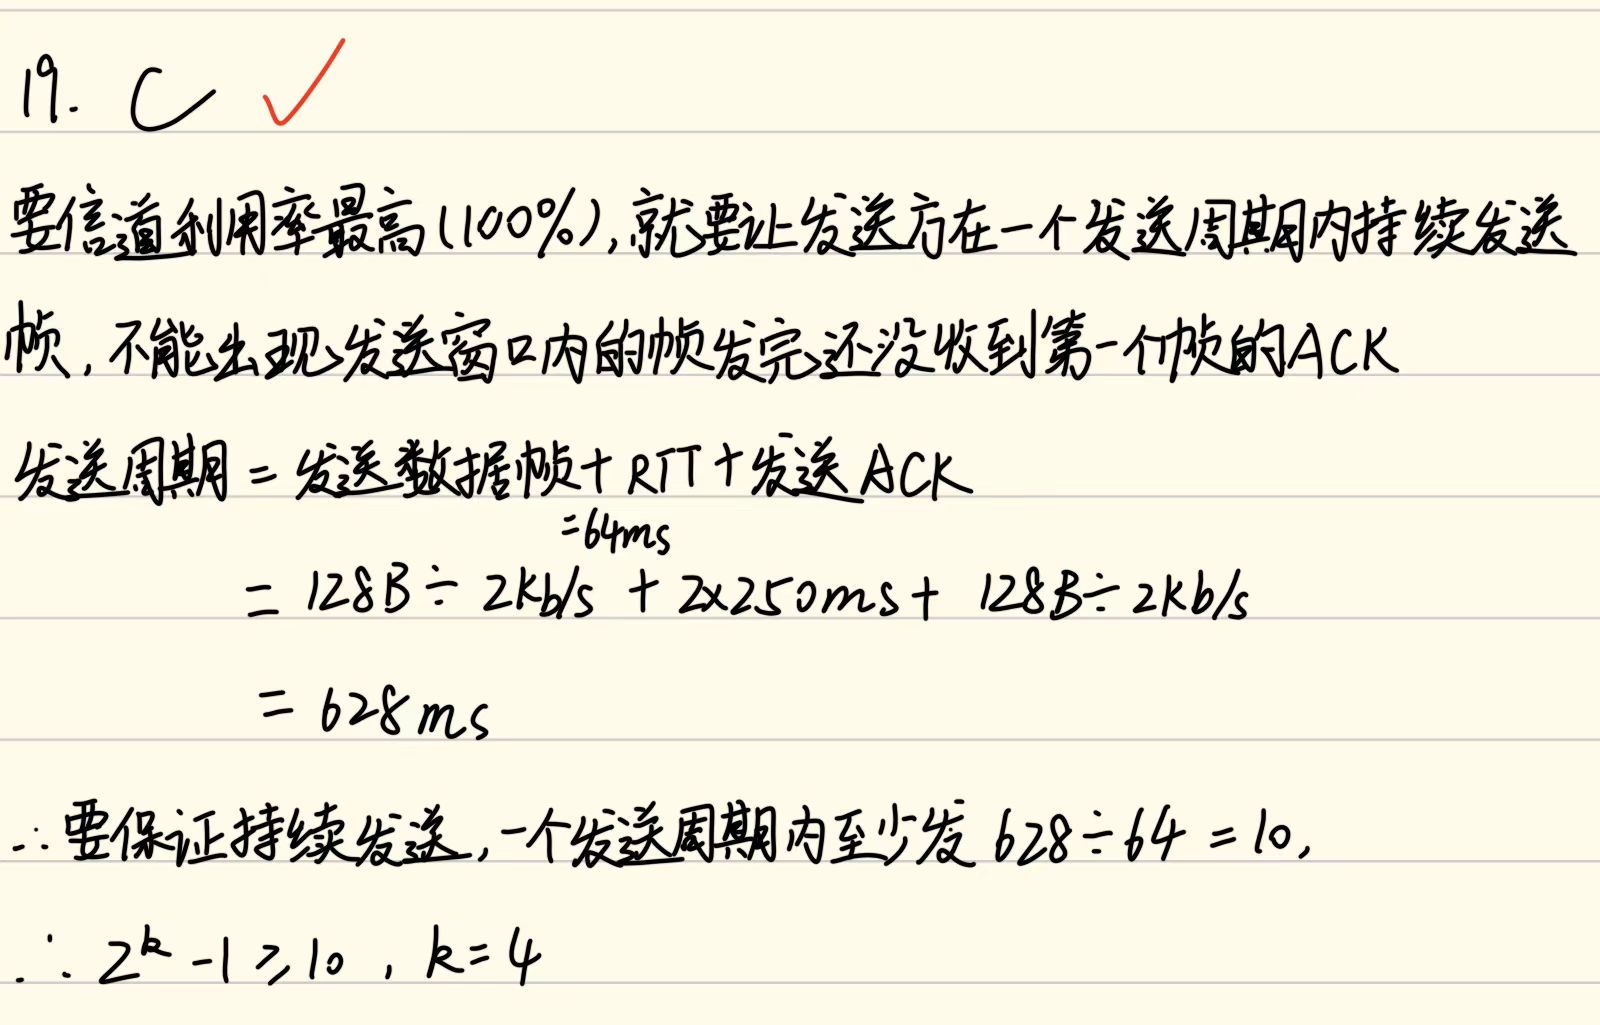 19. C
要信道利用率最高(100%),就要让发送方在一个发送周期内持续发送
帧,不能出现发送窗口内的帧发完还没收到第一个帧的ACK
发送周期 = 发送数据帧 + RTT + 发送ACK
=64ms
= 128B ÷ 2kb/s + 2×250ms + 128B ÷ 2kb/s
= 628ms
∴要保证持续发送,一个发送周期内至少发 628÷64 = 10,
∴ 2^k -1 ≥ 10 , k=4